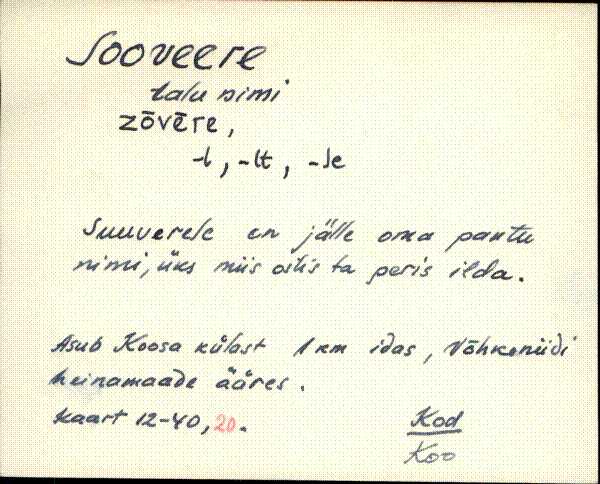 Sooveere
talu nimi
zōvēre,
-l, -lt, -le
Suuverele on jälle oma pantu
nimi, üks miis ostis ta peris ilda.
Asub Koosa külast 1 km idas, Võhkeniidi
heinamaade ääres.
Kaart 12-40, 20.
Kod
Koo